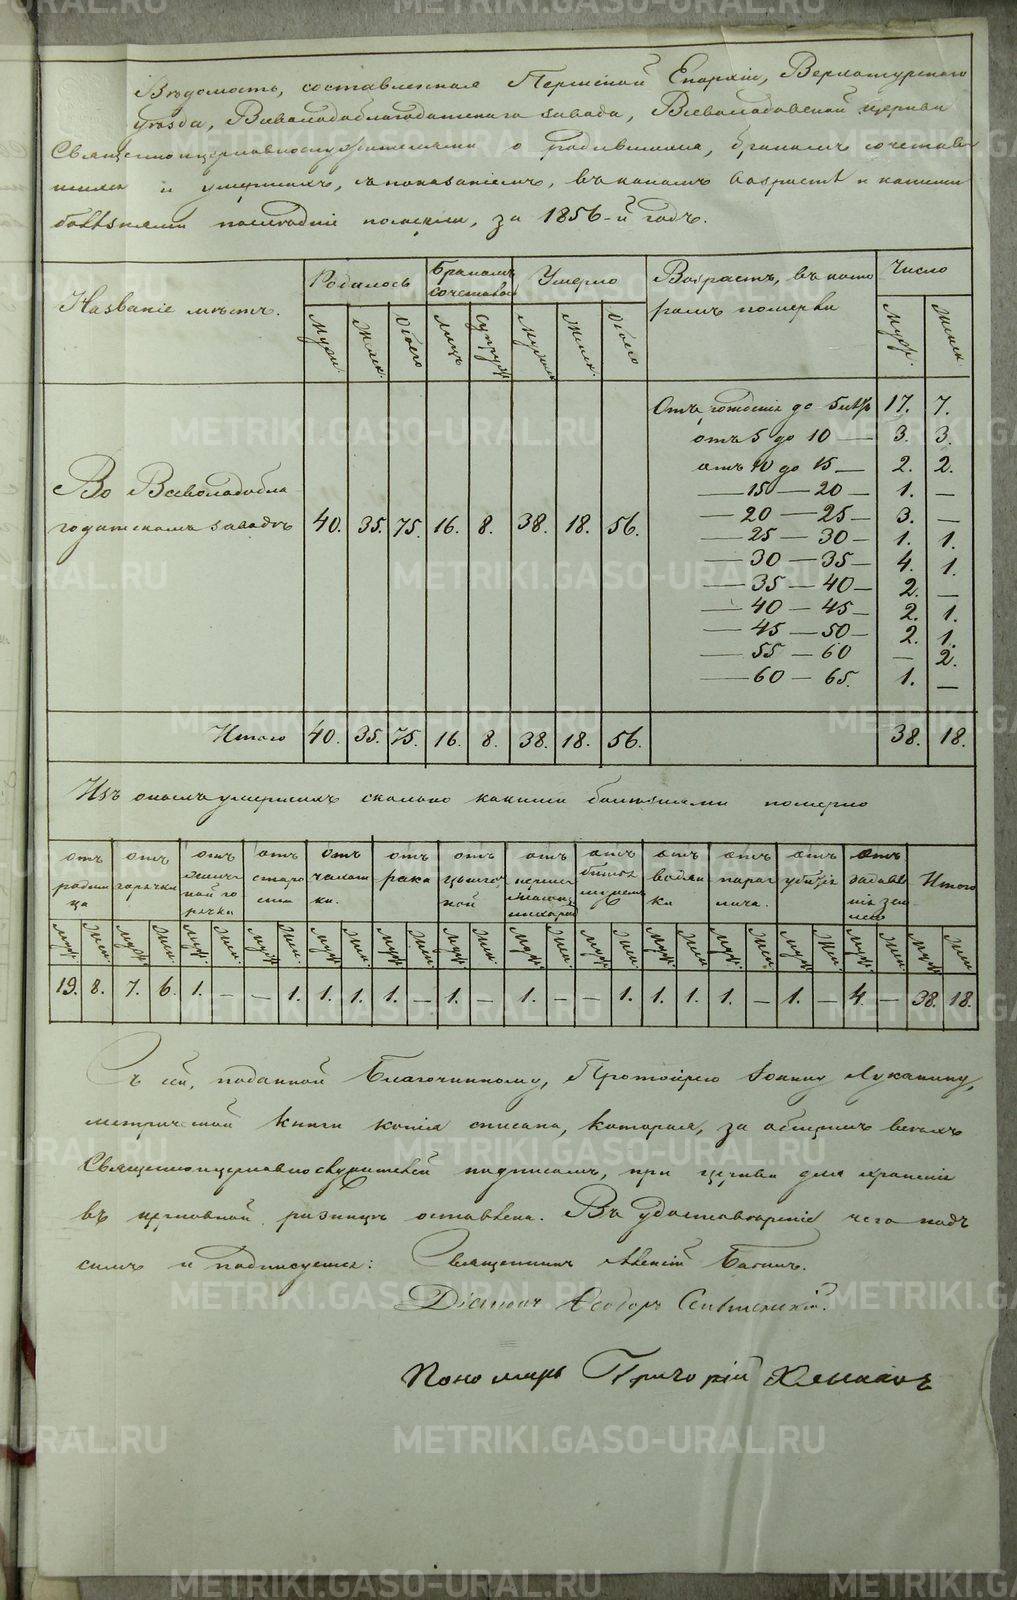 Вѣдомость, составленная Пермской Епархіи, Верхотурскаго
уѣзда, Всеволодоблагодатскаго завода, Всеволодовской церкви
Священноцерковнослужителями о родившихся, бракомъ сочетав-
шихся и умершихъ, съ показаніемъ, въ какомъ возрастѣ и какими
болѣзнями послѣдніе померли, за 1856-й годъ.
Названіе мѣстъ. Родилось Бракомъ сочеталось Умерло Возрастъ, въ кото- Число
ромъ померли
Муж. Жен. Обоего лицъ супруж. Муж. Жен. Обоего Муж. Женск.
Отъ рожденія до 5 лѣтъ 17. 7.
отъ 5 до 10 — 3. 3.
отъ 10 до 15 — 2. 2.
— 15 — 20 — 1. —
Во Всеволодобла-
годатскомъ заводѣ 40. 35. 75. 16. 8. 38. 18. 56.
— 20 — 25 — 3. —
— 25 — 30 — 1. 1.
— 30 — 35 — 4. 1.
— 35 — 40 — 2. —
— 40 — 45 — 2. 1.
— 45 — 50 — 2. 1.
— 55 — 60 — 2.
— 60 — 65. 1. —
Итого 40. 35. 75. 16. 8. 38. 18. 56. 38. 18.
Изъ онаго умершихъ сколько какими болѣзнями померло
отъ родимца отъ горячки отъ горячки отъ старости отъ чахотки. отъ рака отъ цынготной отъ отъ отъ водянки отъ паралича. отъ убійствъ отъ задавленія землею Итого
муж. Жен. муж. Жен. муж. Жен. муж. Жен. муж. Жен. муж. Жен. муж. Жен. муж. Жен. муж. Жен. муж. Жен. муж. Жен. муж. Жен. муж. Жен. муж. Жен.
19. 8. 7. 6. 1. — — 1. 1. 1. 1. — 1. — 1. — — 1. 1. 1. 1. — 1. — 4. — 38. 18.
Съ сей, поданной Благочинному, Протоіерею Іоанну Луканину,
метрической книги копія списана, которая, за общимъ всѣхъ
Священноцерковнослужителей подписомъ, при церкви для храненія
въ церковной ризницѣ оставлена. Въ удостовѣреніе чего подъ
симъ и подписуемся: Священникъ
Діаконъ Ѳеодоръ
Пономарь Григорій Хлынов
METRIKI.GASO-URAL.RU